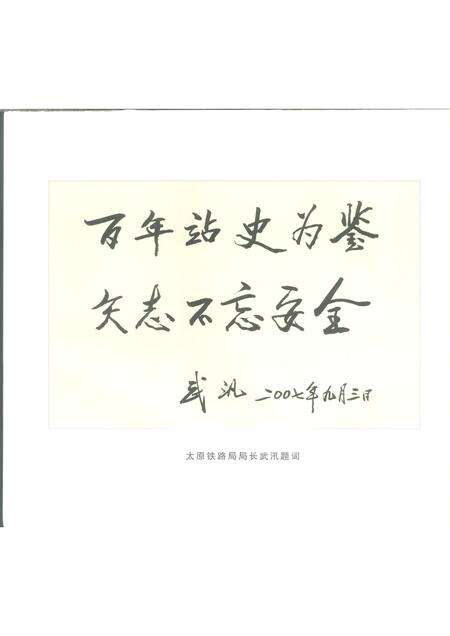 百年站史为鉴
矢志不忘安全
武汛 二00七年九月三日
太原铁路局局长武汛题词